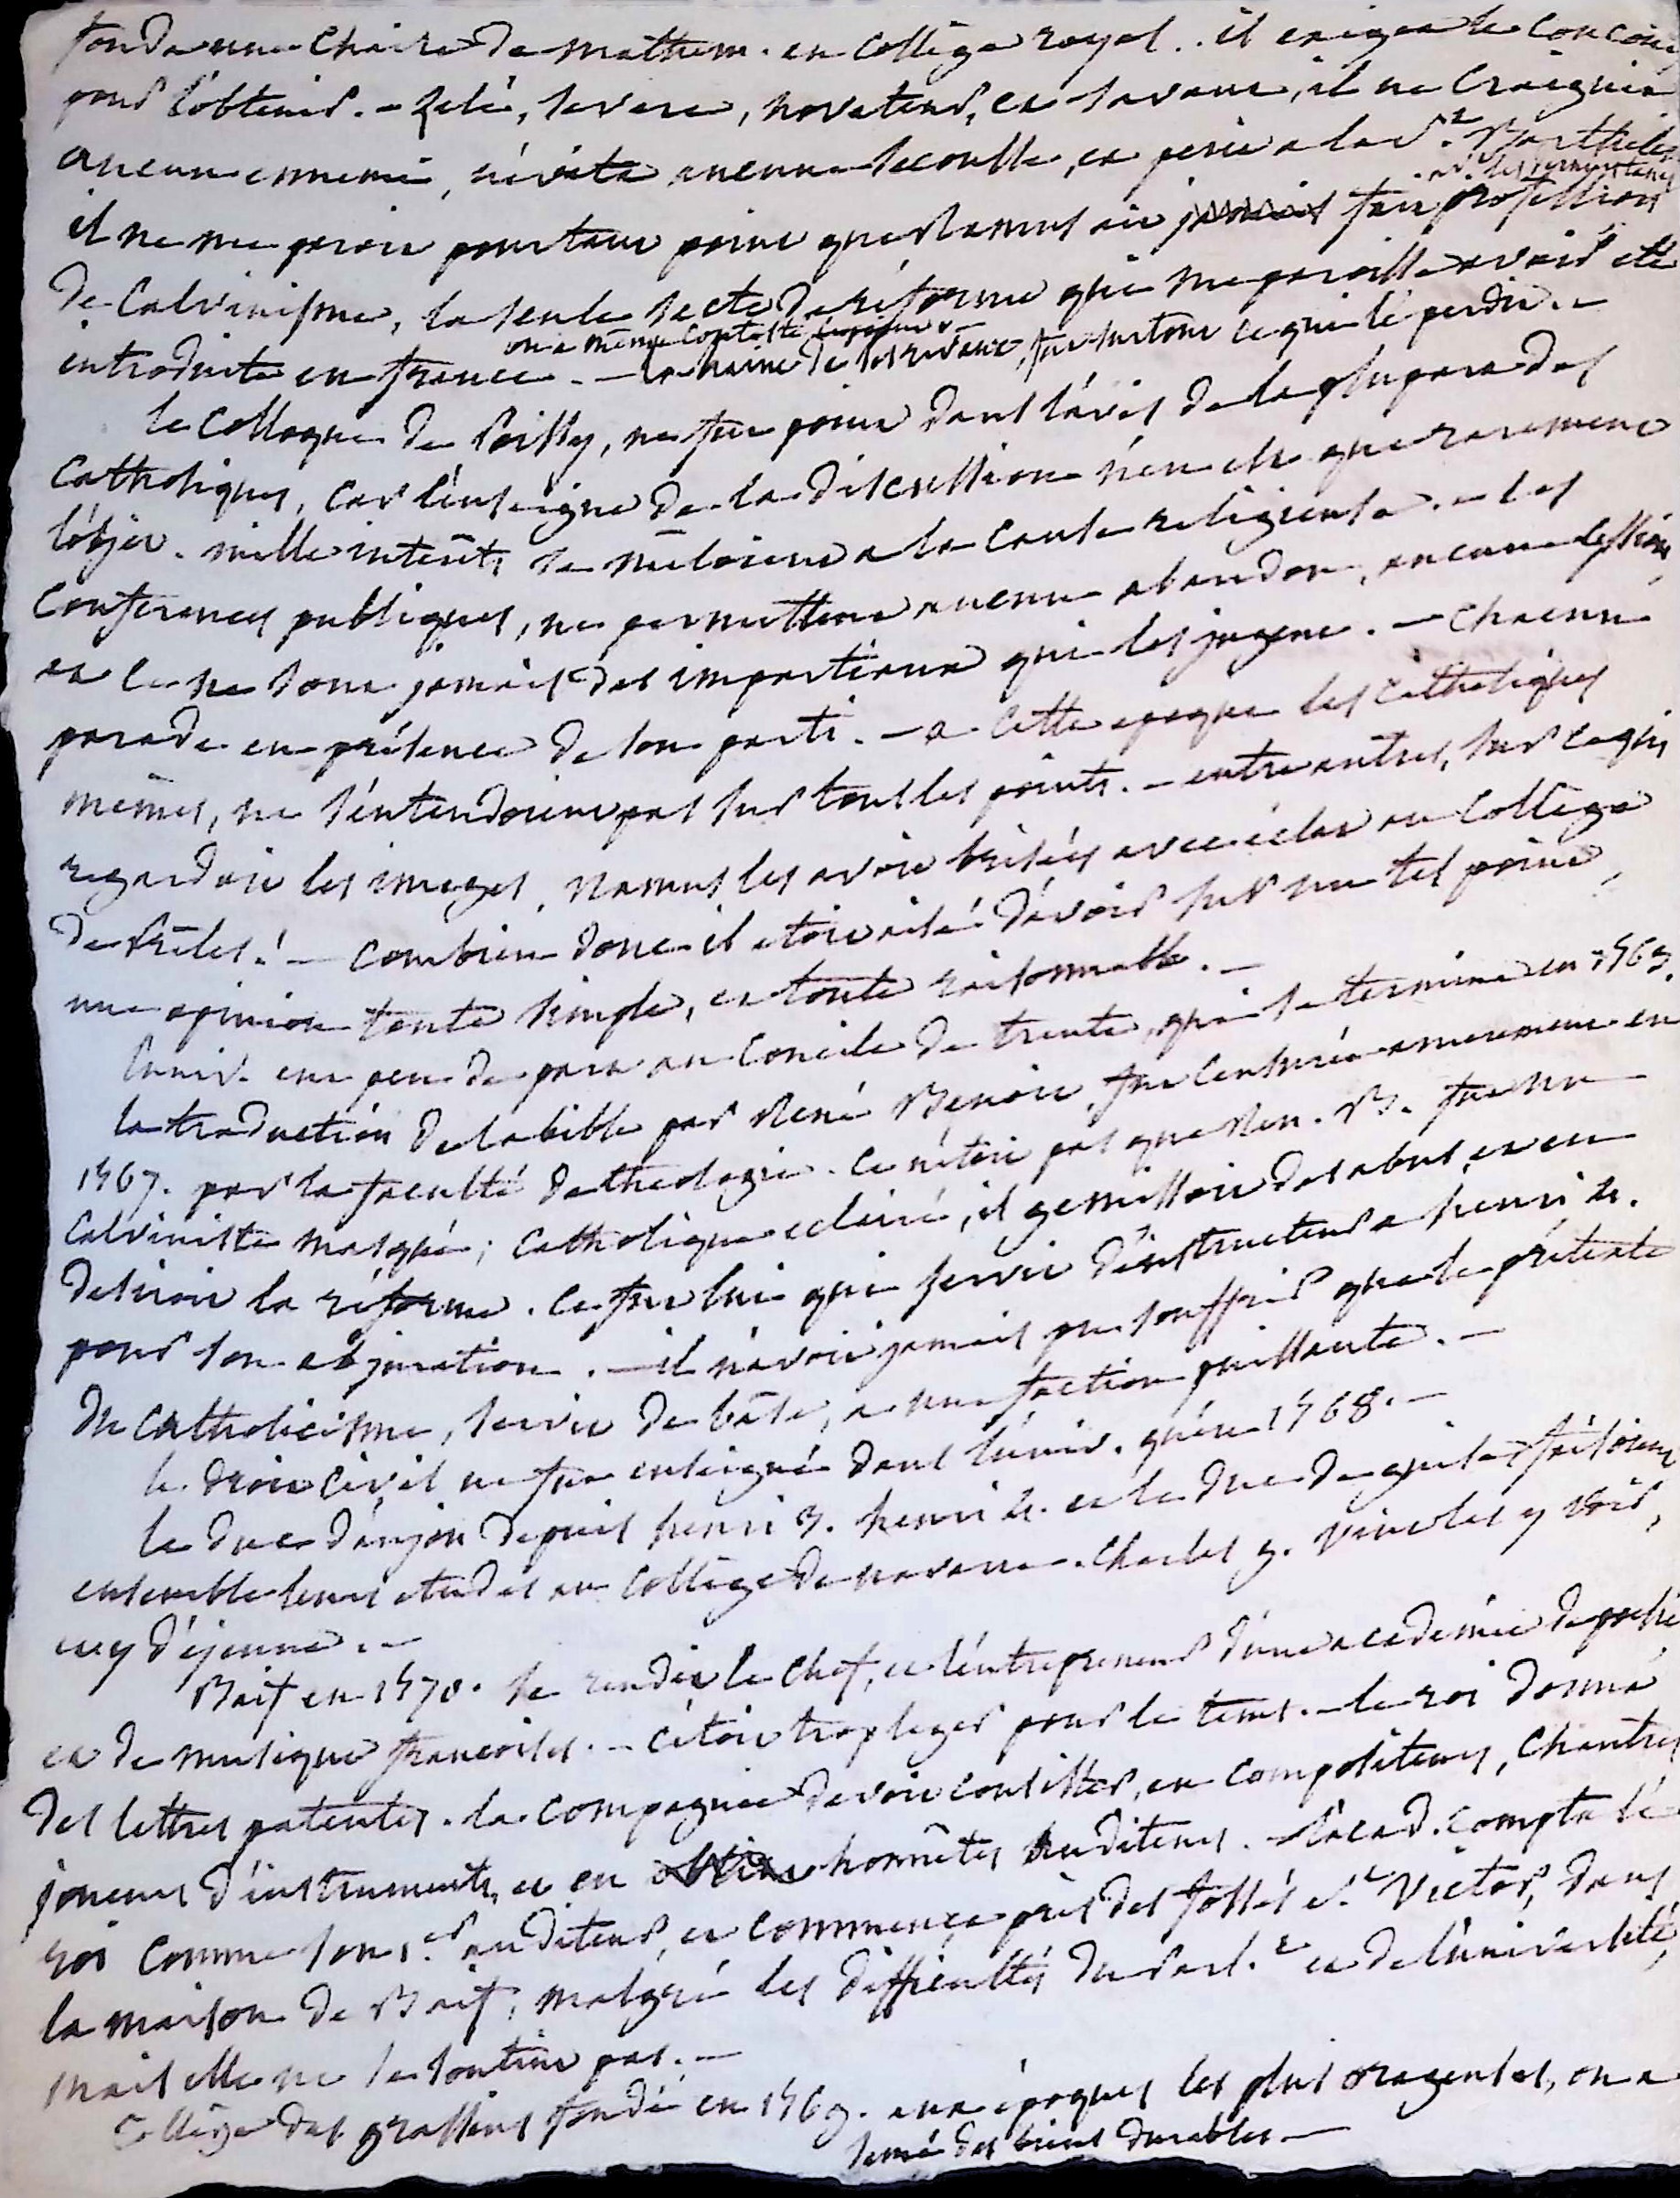 fonda une chaire de mathem. en collège royal.. il exigea le concours
pour l'obtenir. - Zelé, severe, novateur, et savant, il ne craignit
aucun ennemi, n'évita aucune secousse, et perit a la St. Barthelem
il ne me paroit pourtant point que Ramus ait jamais fait profession
de Calvinisme, la seule secte de réforme qui me paroisse avoir été
on a même contesté
introduite en france. - la haine de ses rivaux, fut surtout ce qui le perdit. -
le Colloque de Poissy, ne fut point dans l'avis de la plupart des
Catholiques, car l'enseigne de la discussion n'en est que rarement
l'objet. mille interêts se mêloient a la cause religieuse. - les
Conferences publiques, ne permettent aucun abandon, aucune cession,
et ce ne sont jamais des impartiaux qui les jugent. - Chacun
parade en présence de son parti. - a cette epoque les catholiques
mêmes, ne s'entendoient pas sur tous les points. - entre autres, sur ce qui
regardoit les images, Ramus les avoit brisées avec éclat au College
de Prêles! - Combien donc il etoit aisé d'avoir sur un tel point,
une opinion toute simple, et toute raisonnable. -
l'univ. eut peu de part au Concile de trente, qui se termina en 1563.
la traduction de la bible par René Benoit, fut censurée amerement en
1567. par la faculté de theologie. Ce n'étoit pas que Ren. B. fut un
Calviniste masqué; Catholique eclairé, il gemissoit des abus, et en
desiroit la réforme. Ce fut lui qui servit d'instructeur a henri 4.
pour son abjuration. - il n'avoit jamais pu souffrir que le prétexte
du Catholicisme, servit de bâse, a une faction puissante. -
le droit civil ne fut enseigné dans l'univ. qu'en 1568. -
le duc d'anjou depuis henri 3. henri 4. et le duc de guise faisoient
ensemble leurs etudes au College de navarre. Charles 9. vint les y voir,
et y déjeuna. -
Baif en 1570. se rendit le chef, et l'entrepreneur d'une academie de poësie
et de musique francoises. - c'étoit trop leger pour le tems. - le roi donna
des lettres patentes. la compagnie devoit consister, en compositeurs, chantres
joueurs d'instruments, et en honnêtes auditeurs. - l'acad. compta le
roi comme son 1.er auditeur, et commença près des fossés St. Victor, dans
la maison de Baif, malgré les difficultés du Parl.t et de l'université,
mais elle ne se soutint pas. -
College des grassins fondé en 1569. aux époques les plus orageuses, on a
semé des biens durables. -